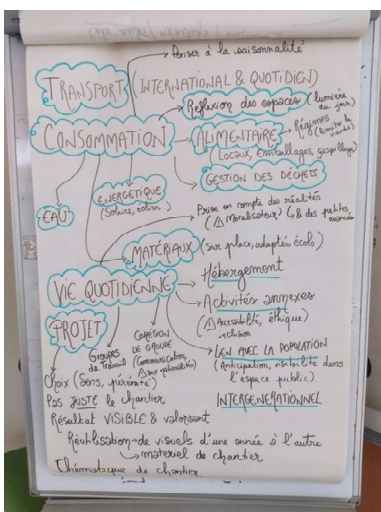 Penser à la saisonnalité
TRANSPORT (INTERNATIONAL & QUOTIDIEN)
Réflexion des espaces (lumière du jour)
CONSOMMATION
ALIMENTAIRE
Régimes (limiter la viande)
(Locaux, Emballages, gaspillage)
GESTION DES DÉCHETS
ENERGETIQUE
(Solaire, éolien)
EAU
Prise en compte des réalités
(⚠ Moralisateur) & des petites
MATÉRIAUX (sur place, adaptés, écolo)
VIE QUOTIDIENNE
Hébergement
Activités annexes
(⚠ Accessibilité, éthique)
inclusion
PROJET
Groupes de Travail
COHÉSION DE GROUPE
(Communication,
LIEN AVEC LA POPULATION
(Anticipation, visibilité dans
l'espace public)
INTERGENERATIONNEL
Choix (Sens, pérennité)
Pas JUSTE le chantier
Résultat VISIBLE & valorisant
Réutilisation → de visuels d'une année à l'autre
→ materiel de chantier
Thématique de chantier